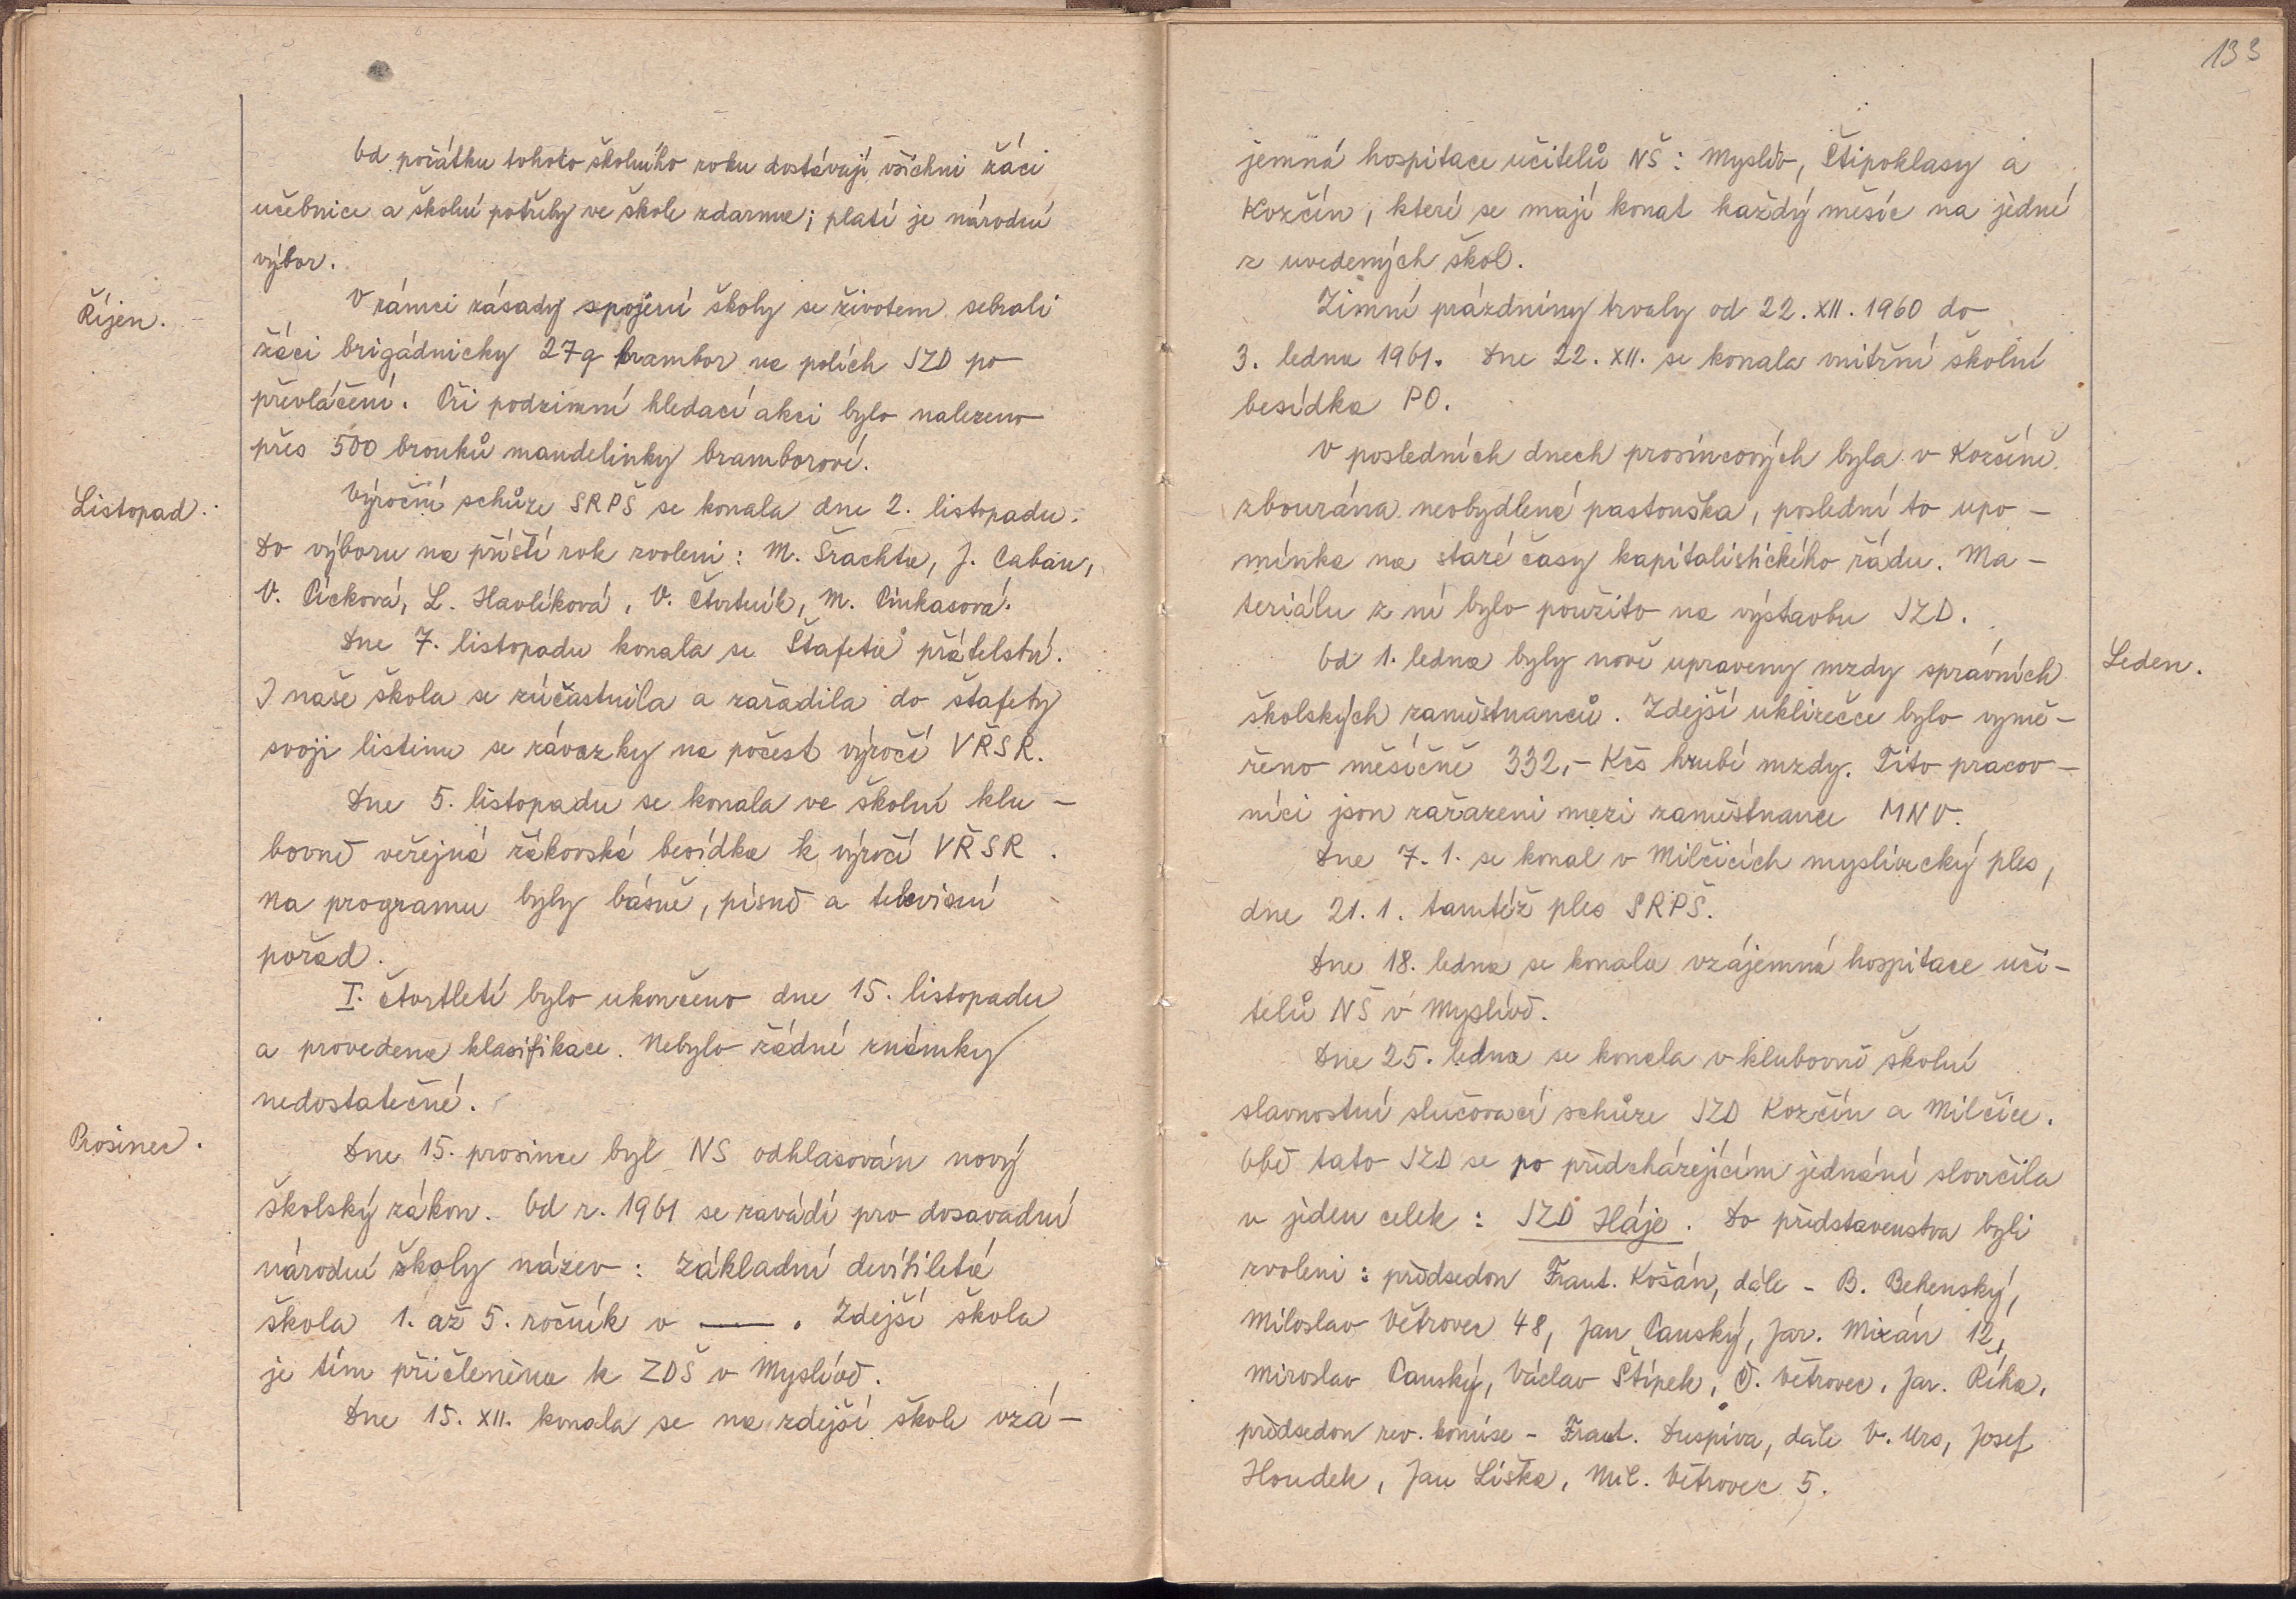 Od počátku tohoto školního roku dostávají všichni žáci
učebnice a školní potřeby ve škole zdarma; platí je národní
výbor.
Říjen.
V rámci zásady spojení školy se životem sebrali
žáci brigádnicky 27q brambor na polích JZD po
převláčení. Při podzimní hledací akci bylo nalezeno
přes 500 brouků mandelinky bramborové.
Listopad.
Výroční schůze SRPŠ se konala dne 2. listopadu.
Do výboru na příští rok zvoleni: M. Šrachta, J. Caban,
V. Pícková, L. Havlíková, V. Čtvrtník, M. Pinkasová.
Dne 7. listopadu konala se Štafeta přátelství.
I naše škola se zúčastnila a zařadila do štafety
svoji listinu se závazky na počest výročí VŘSR.
Dne 5. listopadu se konala ve školní klu-
bovně veřejná žákovská besídka k výročí VŘSR.
Na programu byly básně, písně a televisní
pořad.
I. čtvrtletí bylo ukončeno dne 15. listopadu
a provedena klasifikace. Nebylo žádné známky
nedostatečné.
Prosinec.
Dne 15. prosince byl NS odhlasován nový
školský zákon. Od r. 1961 se zavádí pro dosavadní
národní školy název: Základní devítiletá
škola 1. až 5. ročník v —. Zdejší škola
je tím přičleněna k ZDŠ v Myslívě.
Dne 15. XII. konala se na zdejší škole vzá-
133
jemná hospitace učitelů NŠ: Myslív, Štipoklasy a
Kozčín, které se mají konat každý měsíc na jedné
z uvedených škol.
Zimní prázdniny trvaly od 22. XII. 1960 do
3. ledna 1961. Dne 22. XII. se konala vnitřní školní
besídka PO.
V posledních dnech prosincových byla v Kozčíně
zbourána neobydlená pastouška, poslední to upo-
mínka na staré časy kapitalistického řádu. Ma-
teriálu z ní bylo použito na výstavbu JZD.
Leden.
Od 1. ledna byly nově upraveny mzdy správních
školských zaměstnanců. Zdejší uklizečce bylo vymě-
řeno měsíčně 332,- Kčs hrubé mzdy. Tito pracov-
níci jsou zařazeni mezi zaměstnance MNV.
Dne 7. 1. se konal v Milčicích myslivecký ples,
dne 21. 1. tamtéž ples SRPŠ.
Dne 18. ledna se konala vzájemná hospitace uči-
telů NŠ v Myslívě.
Dne 25. ledna se konala v klubovně školní
slavnostní slučovací schůze JZD Kozčín a Milčice.
Obě tato JZD se po předcházejícím jednání sloučila
v jeden celek: JZD Háje. Do představenstva byli
zvoleni: předsedou Frant. Košán, dále - B. Behenský,
Miloslav Větrovec 48, Jan Panský, Jar. Mizán 12,
Miroslav Panský, Václav Štípek, Větrovec, Jar. Říha,
předsedou rev. komise - Frant. Duspiva, dále V. Urs, Josef
Houdek, Jan Liška, Mil. Větrovec 5.